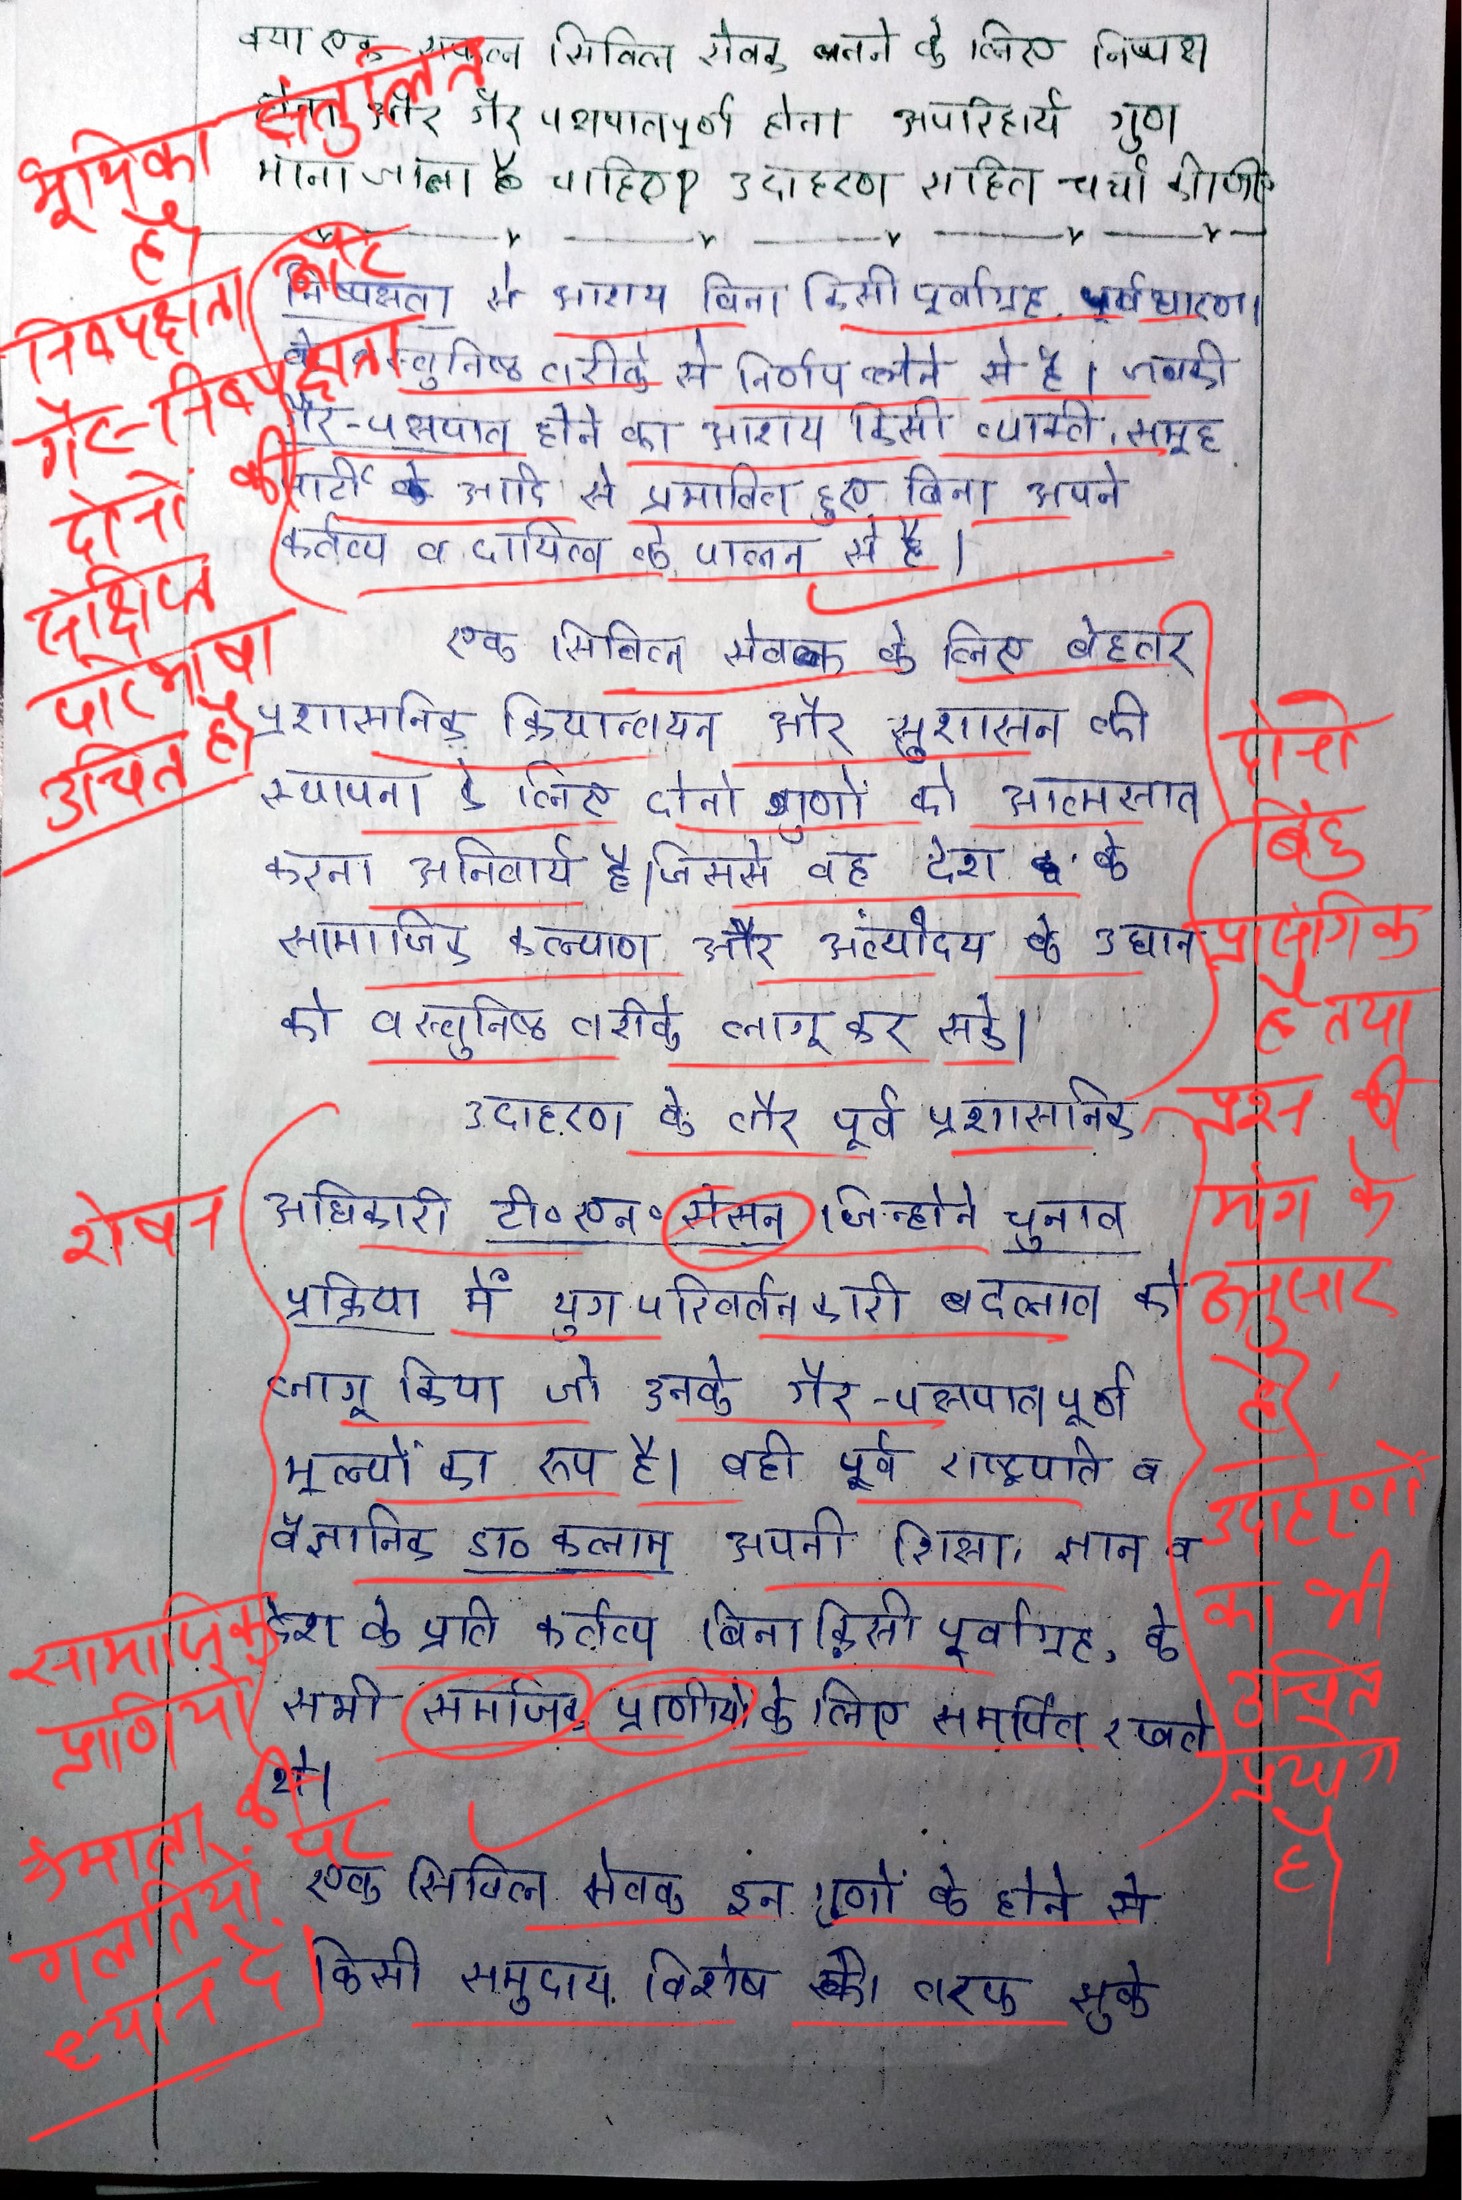 क्या एक सफल सिविल सेवक बनने के लिए निष्पक्ष
होना और गैर पक्षपातपूर्ण होना अपरिहार्य गुण
माना जाता है चाहिए? उदाहरण सहित चर्चा कीजिए
निष्पक्षता से आशय बिना किसी पूर्वाग्रह, पूर्वधारणा
के वस्तुनिष्ठ तरीके से निर्णय लेने से है। जबकी
गैर-पक्षपात होने का आशय किसी व्यक्ति, समूह
पार्टी के आदि से प्रभावित हुए बिना अपने
कर्तव्य व दायित्व के पालन से है।
एक सिविल सेवक के लिए बेहतर
प्रशासनिक क्रियान्वयन और सुशासन की
स्थापना के लिए दोनो गुणों को आत्मसात
करना अनिवार्य है। जिससे वह देश के
सामाजिक कल्याण और अंत्योदय के उधान
को वस्तुनिष्ठ तरीके लागू कर सके।
उदाहरण के तौर पूर्व प्रशासनिक
अधिकारी टी०एन० सेसन जिन्होने चुनाव
प्रक्रिया में युग परिवर्तनकारी बदलाव को
लागू किया जो उनके गैर-पक्षपातपूर्ण
मूल्यों का रूप है। वही पूर्व राष्ट्रपति व
वैज्ञानिक डा० कलाम अपनी शिक्षा, ज्ञान व
देश के प्रति कर्तव्य बिना किसी पूर्वाग्रह, के
सभी समाजिक प्राणीयो के लिए समर्पित रखते
थे।
एक सिविल सेवक इन गुणों के होने से
किसी समुदाय विशेष की तरफ झुके
भूमिका संतुलित
है।
निष्पक्षता और
गैर-निष्पक्षता
दोनों की
संक्षिप्त
परिभाषा
उचित है।
शेषन
सामाजिक
प्राणियों
मात्रा की
गलतियों पर
ध्यान दें।
दोनो
बिंदु
प्रासंगिक
है तथा
प्रश्न की
मांग के
अनुसार
है,
उदाहरणों
का भी
उचित
प्रयोग
है।